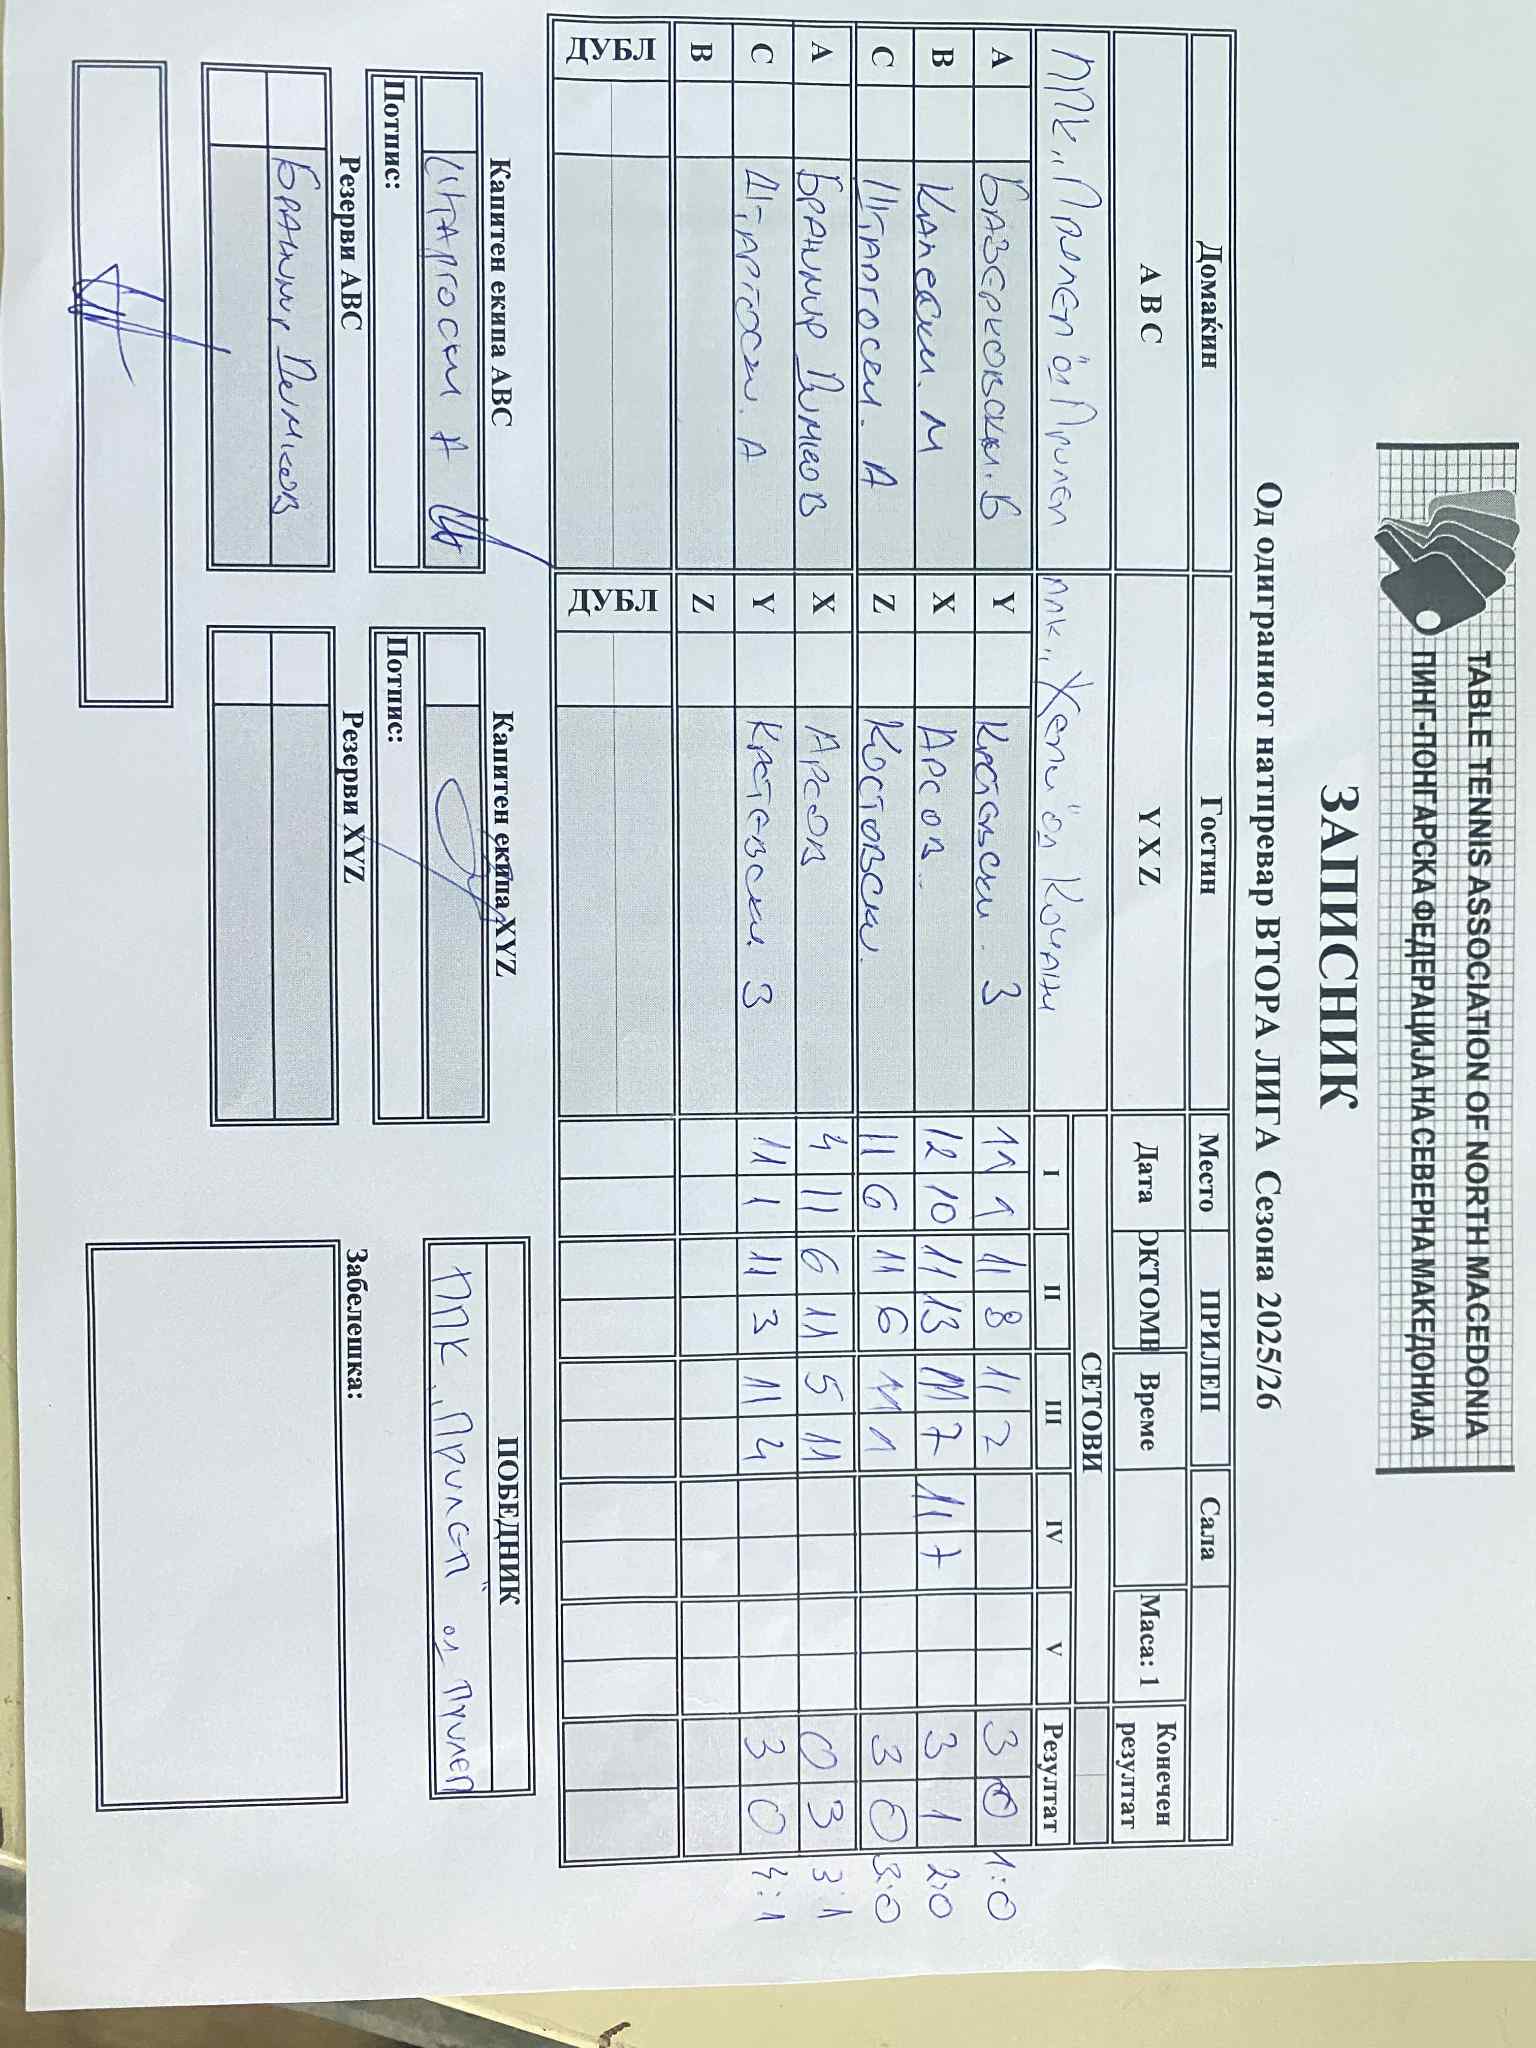 TABLE TENNIS ASSOCIATION OF NORTH MACEDONIA
ПИНГ-ПОНГАРСКА ФЕДЕРАЦИЈА НА СЕВЕРНА МАКЕДОНИЈА
ЗАПИСНИК
Од одиграниот натпревар ВТОРА ЛИГА Сезона 2025/26
Домаќин Гостин Место ПРИЛЕП Сала
A B C Y X Z Дата ОКТОМВ Време Маса: 1 Конечен резултат
СЕТОВИ
ППК „Прилеп" од Прилеп ППК „Хепи" од Кочани I II III IV V Резултат
A БАЗЕРКОВСКИ. Б Y Крстевски. З 11 1 11 8 11 2 3 0 1:0
B Капески. М X Арсов.. 12 10 11 13 11 7 11 7 3 1 2:0
C Штаргоски. А Z Костовски. 11 6 11 6 11 1 3 0 3:0
A Бранимир Димков X Арсов 4 11 6 11 5 11 0 3 3:1
C Штаргоски. А Y Крстевски З 11 1 11 3 11 4 3 0 4:1
B Z
ДУБЛ ДУБЛ
Капитен екипа ABC Капитен екипа XYZ ПОБЕДНИК
Штаргоски А ППК „Прилеп" од Прилеп
Потпис: Потпис:
Резерви ABC Резерви XYZ Забелешка:
Бранимир Димков